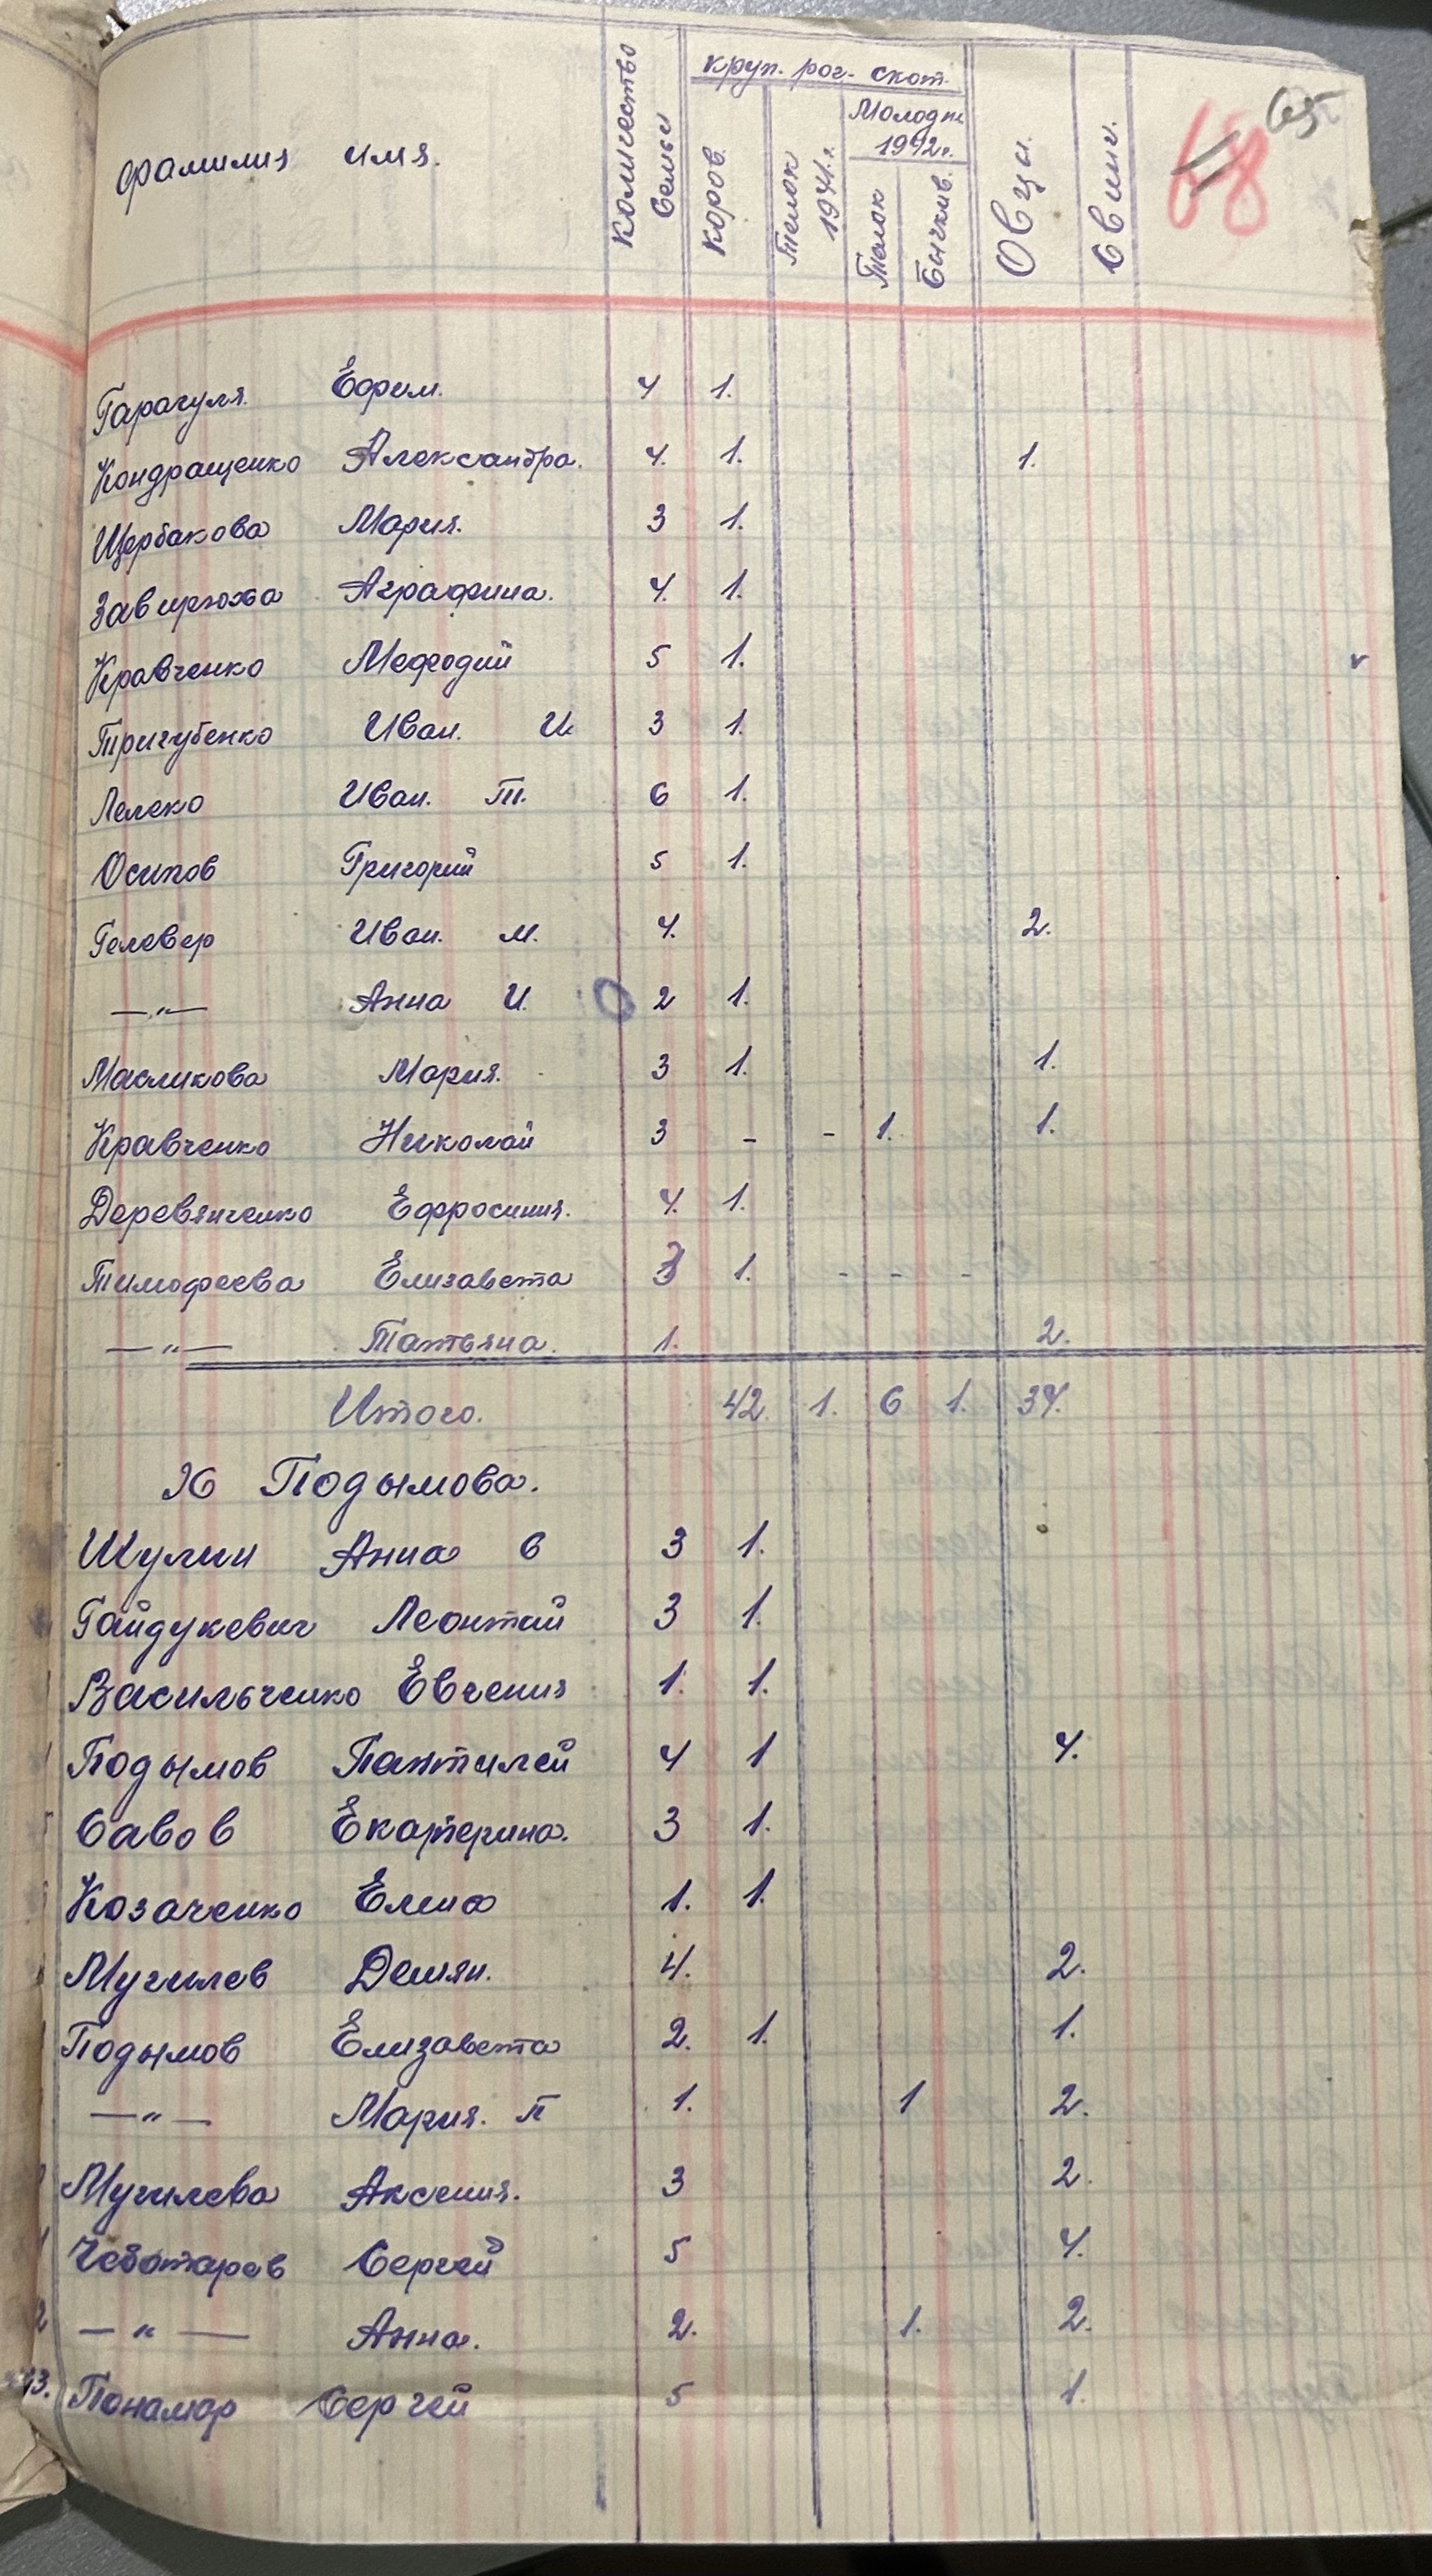 фамилия имя. Количество Семьи круп. рог. скот. Овцы. Свин. 65
Коров. Телок 1941 г. Молодн 1942 г. 68
Телок Бычков.
Гарагуля Ефрем. 4 1.
Кондращенко Александра. 4. 1. 1.
Щербакова Мария. 3 1.
Завирюха Аграфина. 4. 1.
Кравченко Мефодий 5 1. v
Тригубенко Иван. И 3 1.
Лелеко Иван. Т. 6 1.
Осипов Григорий 5 1.
Гелевер Иван. М. 4. 2.
—„— Анна И. 2 1.
Масликова Мария. 3 1. 1.
Кравченко Николай 3 - - 1. 1.
Деревянченко Ефросиния. 4. 1.
Тимофеева Елизавета 3 1. - - -
—„— Татьяна. 1. 2.
Итого. 42. 1. 6 1. 34.
Х Подымова.
Шулин Анна В 3 1.
Гайдукевич Леонтий 3 1.
Васильченко Евгения 1. 1.
Подымов Пантилей 4 1 4.
Савов Екатерина. 3 1.
Козаченко Елена 1. 1.
Мугилев Демян. 4. 2.
Подымов Елизавета 2. 1. 1.
—„— Мария. П 1. 1 2.
Мугилева Аксения. 3 2.
Чеботарев Сергей 5 4.
—„— Анна. 2. 1. 2.
13. Понамар Сергей 5 1.